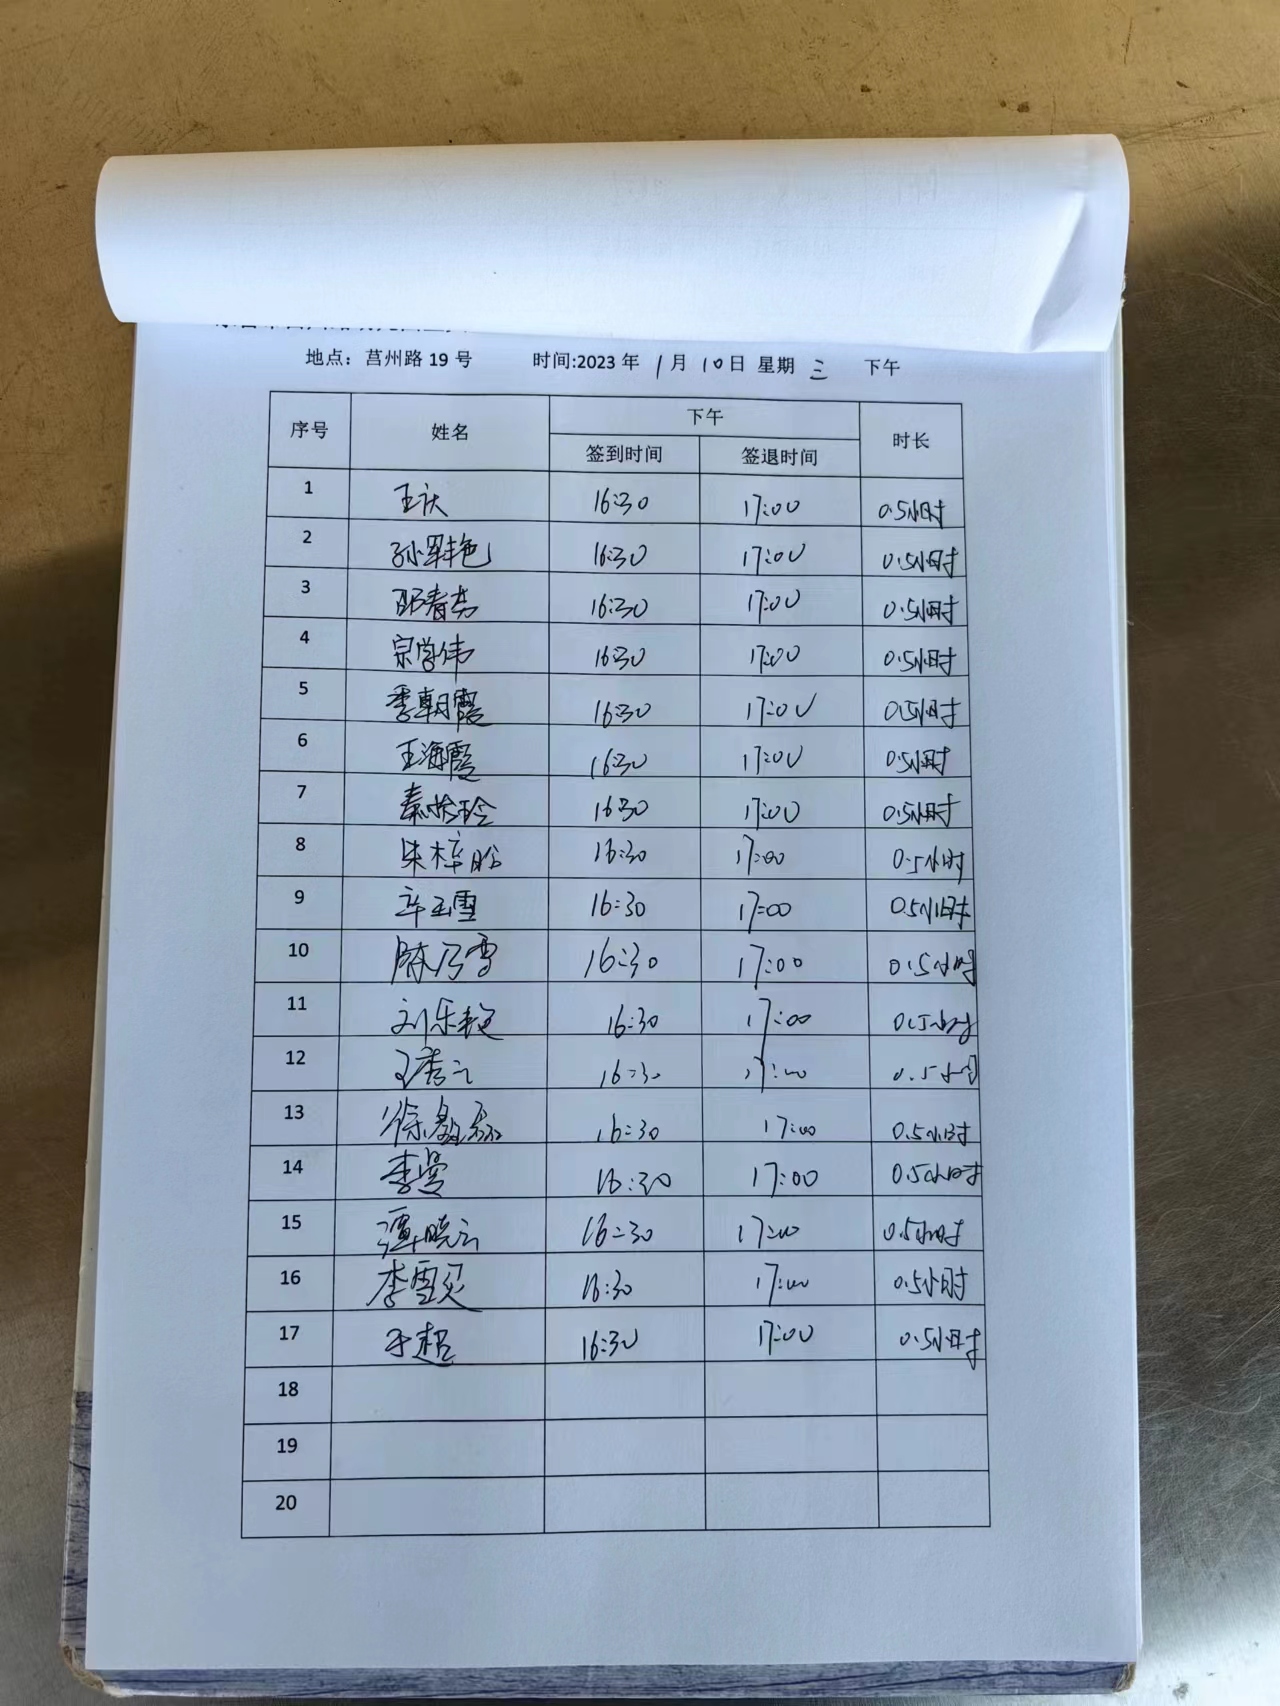 地点：莒州路 19 号 时间:2023 年 1 月 10 日 星期 三 下午
序号 姓名 下午 时长
签到时间 签退时间
1 王庆 16:30 17:00 0.5小时
2 孙军艳 16:30 17:00 0.5小时
3 邵春芳 16:30 17:00 0.5小时
4 宗学伟 16:30 17:00 0.5小时
5 季朝霞 16:30 17:00 0.5小时
6 王海霞 16:30 17:00 0.5小时
7 秦怡玲 16:30 17:00 0.5小时
8 朱梓盼 16:30 17:00 0.5小时
9 辛玉雪 16:30 17:00 0.5小时
10 陈乃雪 16:30 17:00 0.5小时
11 刘乐 16:30 17:00 0.5小时
12 王秀云 16:30 17:00 0.5小时
13 徐 16:30 17:00 0.5小时
14 李曼 16:30 17:00 0.5小时
15 谭晓云 16:30 17:00 0.5小时
16 李雪 16:30 17:00 0.5小时
17 于超 16:30 17:00 0.5小时
18
19
20